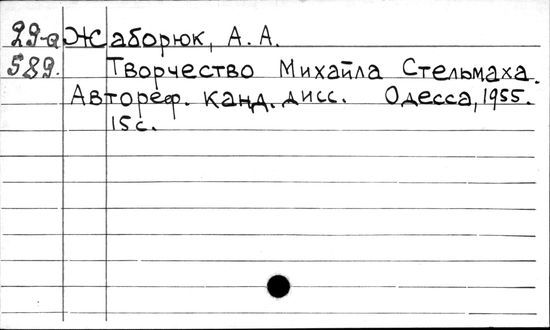 29-а Жаборюк, А. А.
589. Творчество Михайла Стельмаха.
Автореф. канд. дисс. Одесса, 1955.
15 с.